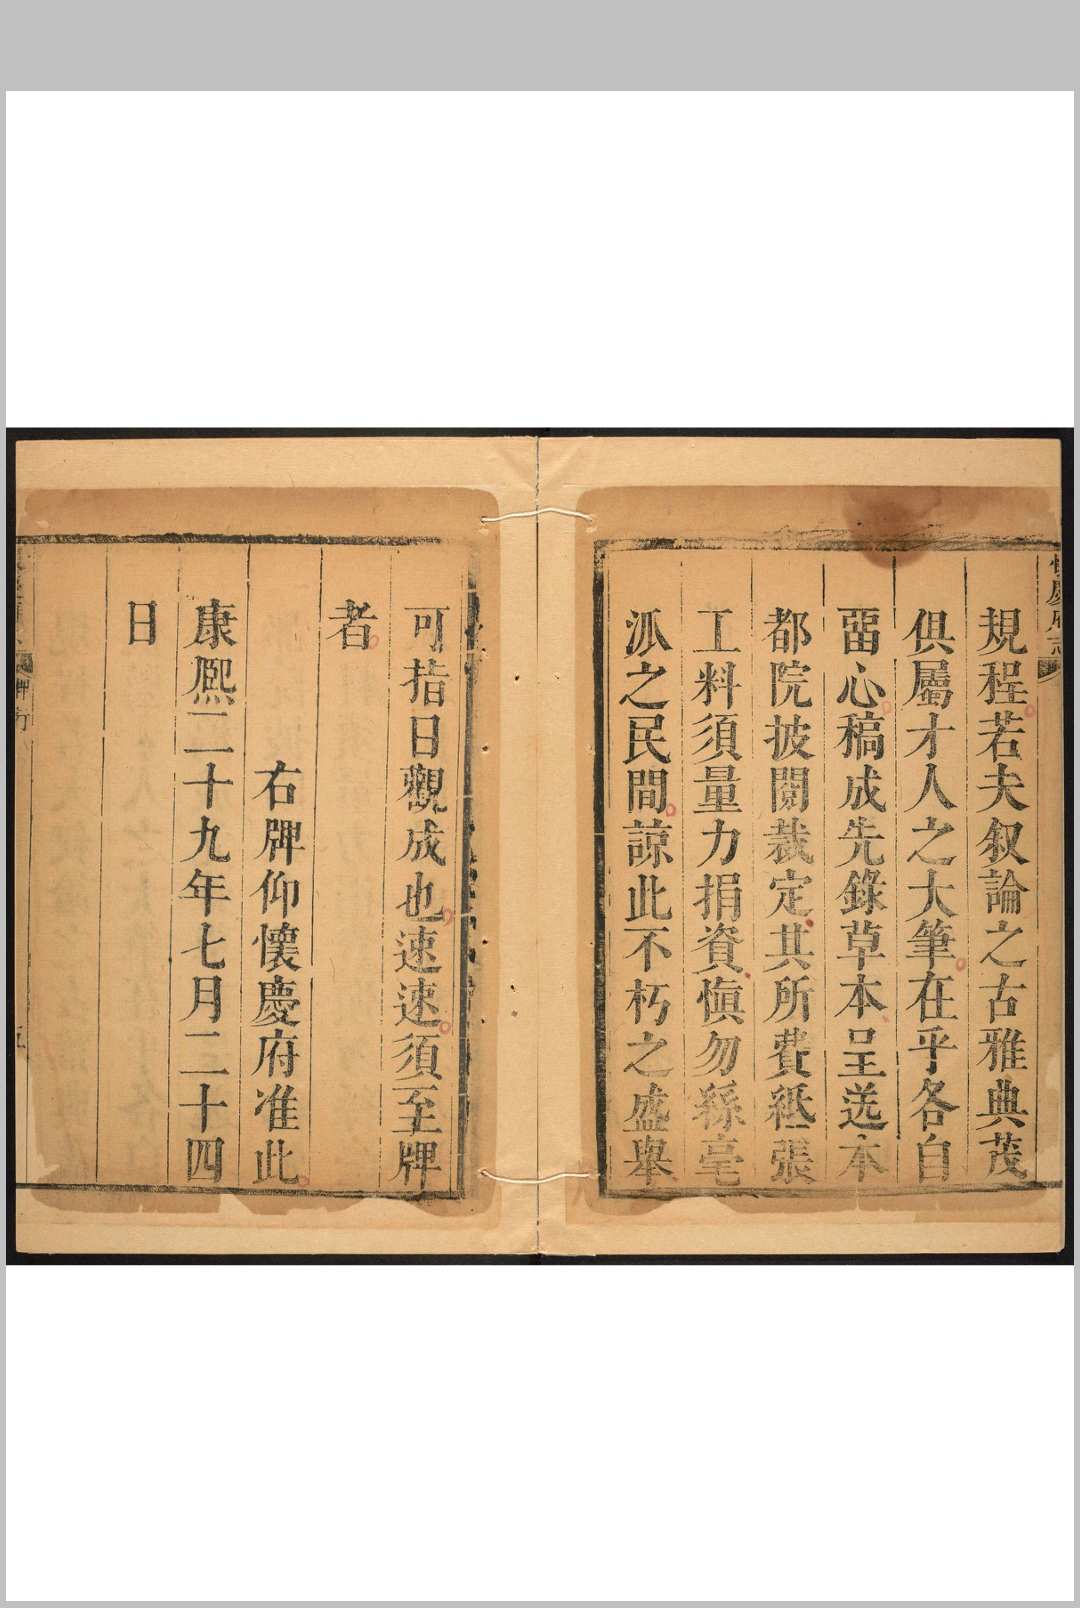 規程若夫叙論之古雅典茂
俱屬才人之大筆在乎各自
畱心稿成先錄草本呈送本
都院披閱裁定其所費紙張
工料須量力捐資愼勿繇毫
派之民間諒此不朽之盛舉
可指日觀成也速速須至牌
者
右牌仰懷慶府准此
康熙二十九年七月二十四
日